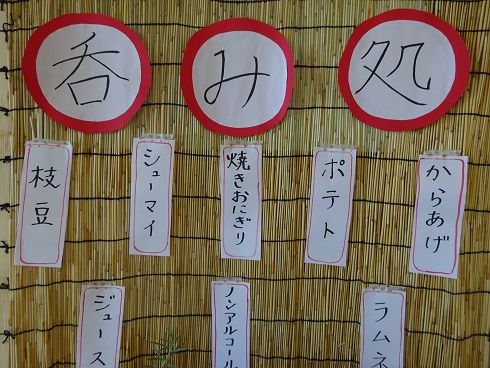 呑み処
枝豆
シューマイ
焼きおにぎり
ポテト
からあげ
ジュース
ノンアルコール
ラムネ